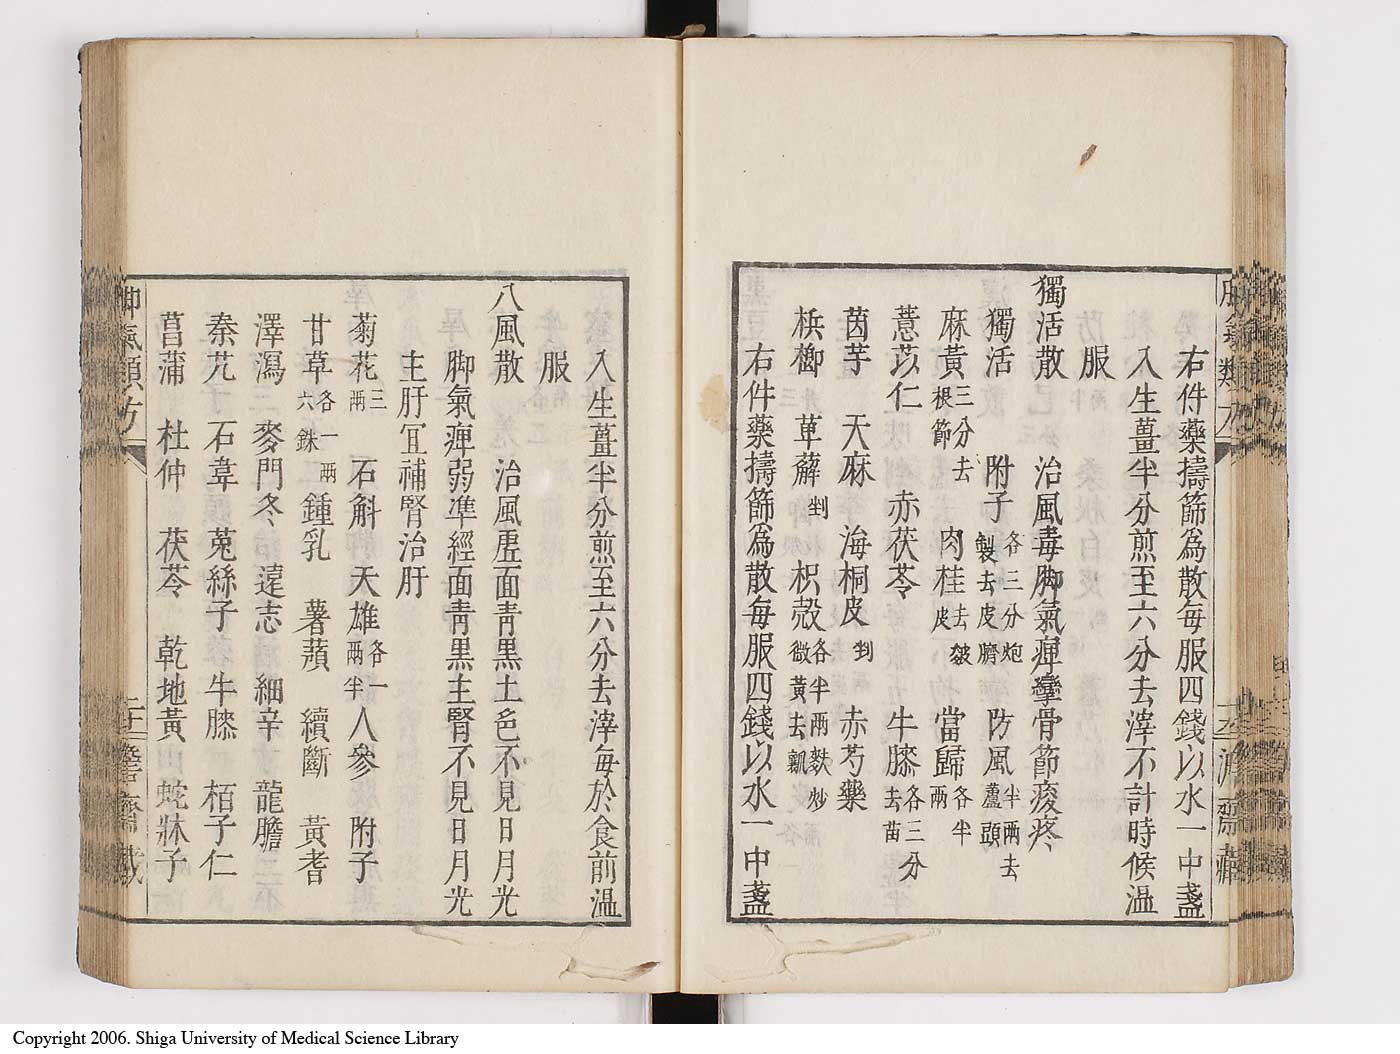 右件藥擣篩爲散每服四錢以水一中盞
入生薑半分煎至六分去滓不計時候溫
服
獨活散 治風毒脚氣痺攣骨節痠疼
獨活 附子各三分炮製去皮臍 防風半兩去蘆頭
麻黃三分去根節 肉桂去皴皮 當歸各半兩
薏苡仁 赤茯苓 牛膝各三分去苗
茵芋 天麻 海桐皮剉 赤芍藥
梹榔 萆薢剉 枳殼各半兩麩炒微黃去瓤
右件藥擣篩爲散每服四錢以水一中盞
入生薑半分煎至六分去滓每於食前溫
服
八風散 治風虛面靑黑土色不見日月光
脚氣痺弱凖經面靑黑主腎不見日月光
主肝冝補腎治肝
菊花三兩 石斛 天雄各一兩半 人參 附子
甘草各一兩六銖 鍾乳 薯蕷 續斷 黃耆
澤瀉 麥門冬 遠志 細辛 龍膽
秦艽 石韋 菟絲子 牛膝 栢子仁
菖蒲 杜仲 茯苓 乾地黃 山蛇牀子
脚氣類方
Copyright 2006. Shiga University of Medical Science Library